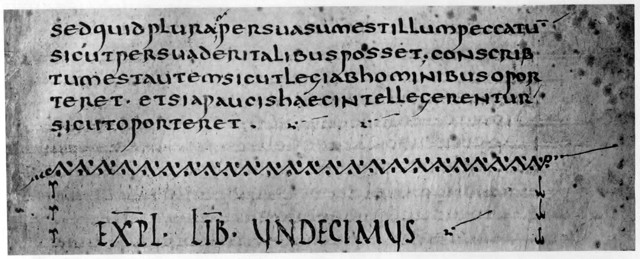 SEDQUIDPLURAPERSUASUMESTILLUMPECCATU̅
SICUTPERSUADERITALIBUSPOSSET·CONSCRIB
TUMESTAUTEMSICUTLEGIABHOMINIBUSOPOR
TERET·ETSIAPAUCISHAECINTELLEGERENTUR
SICUTOPORTERET
EXP̅L· LIB̅· UNDECIMUS